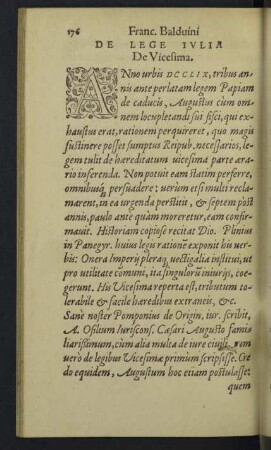 176 Franc. Balduini
DE LEGE IVLIA
De Vicesima.
ANno urbis DCCLIX, tribus an-
nis ante perlatam legem Papiam
de caducis, Augustus cùm om-
nem locupletandi sui fisci, qui ex-
haustus erat, rationem perquireret, quo magis
sustinere posset sumptus Reipub. necessarios, le-
gem tulit de hæreditatum vicesima parte æra-
rio inferenda. Non potuit eam statim perferre,
omnibusq́ persuadere: verùm etsi multi recla-
marent, in ea urgenda perstitit, & septem pòst
annis, paulo ante quàm moreretur, eam confir-
mauit. Historiam copiose recitat Dio. Plinius
in Panegyr. huius legis rationē exponit his uer-
bis: Onera Imperij pleraq́ uectigalia institui, ut
pro utilitate cōmuni, ita singulorū iniurijs, coë-
gerunt. His Vicesima reperta est, tributum to-
lerabile & facile hæredibus extraneis, &c.
Sanè noster Pomponius de Origin. iur. scribit,
A. Ofilium Iurisconſ. Cæsari Augusto fami-
liarissimum, cùm alia multa de iure ciuili,
uerò de legibus Vicesimæ primùm scripsisse. Cre
do equidem, Augustum hoc etiam postulasse:
quem